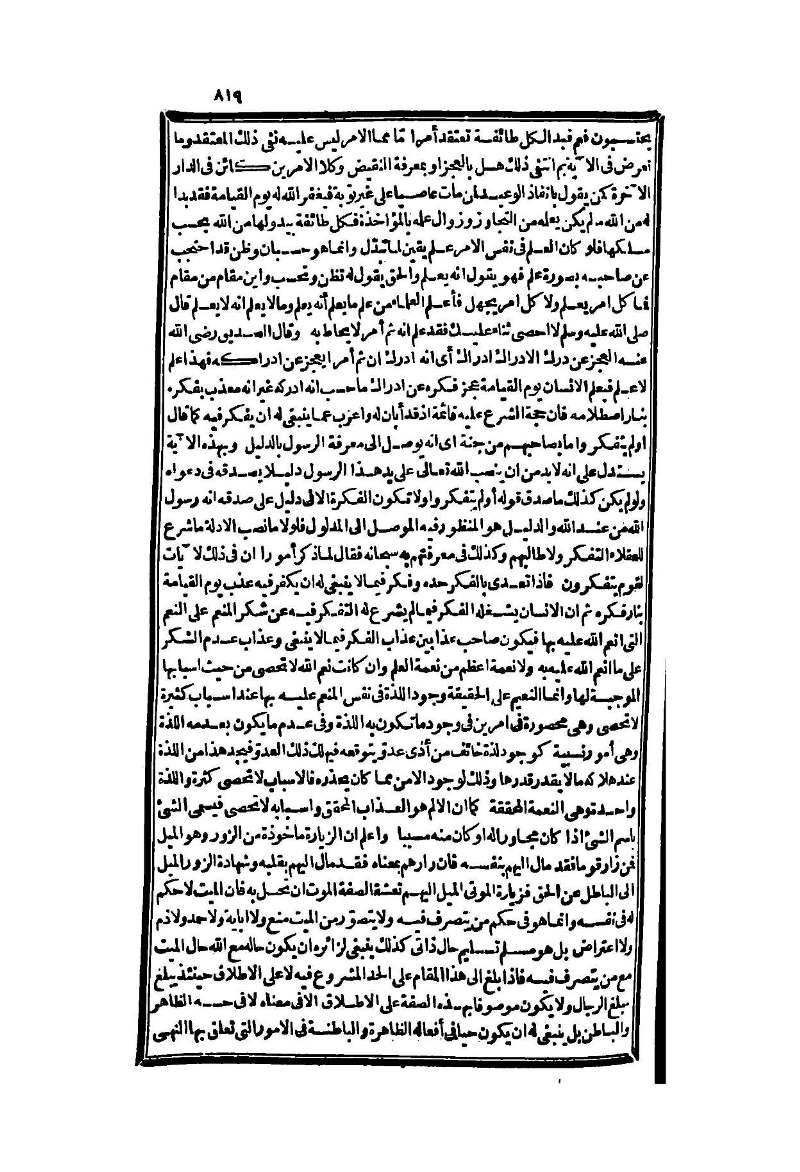 ٨١٩
يحتسبون فعم فبدا لكل طائفة تعتقد أمرا ما مما الامر ليس عليه نفى ذلك المعتقد وما
تعرض فى الآية بم انتفى ذلك هل بالعجز او بمعرفة النقيض وكلا الامرين كائن فى الدار
الآخرة كمن يقول بانفاذ الوعيد ان مات عاصيا على غير توبة فيغفر الله له يوم القيامة فقد بدا
له من الله ما لم يكن يعلمه من التجاوز وزوال علمه بالمؤاخذة فكل طائفة يبدو لها من الله بحسب
مسلكها فلو كان العلم فى نفس الامر علم يقين لما تبدّل وانما هو حسبان وظن قد احتجب
عن صاحبه بصورة علم فهو يقول انه يعلم والحق يقول له تظن وتحسب واين مقام من مقام
فما كل امر يعلم ولا كل امر يجهل فأعلم العلماء من علم ما يعلم أنه يعلم وما لا يعلم انه لا يعلم قال
صلى الله عليه وسلم لا احصى ثناء عليك فقد علم انه ثم أمر لا يحاط به وقال الصديق رضى الله
عنه العجز عن درك الادراك ادراك أى انه ادرك ان ثم أمرا يعجز عن ادراكه فهذا علم
لا علم فيعلم الانسان يوم القيامة عجز فكره عن ادراك ما حسب انه ادركه غير انه معذب بفكره
بنار اصطلامه فان حجة الشرع عليه قائمة اذ قد أبان له واعرب عما ينبغى له ان يفكر فيه كما قال
اولم يتفكروا ما بصاحبهم من جنة اى انه يوصل الى معرفة الرسول بالدليل وبهذه الآية
يستدل على انه لابد من ان ينصب الله تعالى على يد هذا الرسول دليلا يصدقه فى دعواه
ولو لم يكن كذلك ما صدق قوله أولم يتفكروا ولا تكون الفكرة الا فى دليل على صدقه انه رسول
الله من عند الله والدليل هو المنظور فيه الموصل الى المدلول فلولا ما نصب الادلة ما شرع
للعقلاء التفكر ولا طالبهم وكذلك فى معرفتهم به سبحانه فقال لما ذكر أمورا ان فى ذلك لآيات
لقوم يتفكرون فاذا تعدى بالفكر حده وفكر فيما لا ينبغى له ان يكفر فيه عذب يوم القيامة
بنار فكره ثم ان الانسان يشغله الفكر فيما لم يشرع له التفكر فيه عن شكر المنعم على النعم
التى انعم الله عليه بها فيكون صاحب عذابين عذاب الفكر فيما لا ينبغى وعذاب عدم الشكر
على ما انعم الله عليه به ولا نعمة اعظم من نعمة العلم وان كانت نعم الله لا تحصى من حيث اسبابها
الموجبة لها وانما النعيم على الحقيقة وجود اللذة فى نفس المنعم عليه بها عند اسباب كثيرة
لا تحصى وهى محصورة فى امرين فى وجود ما تكون به اللذة وفى عدم ما يكون بعدمه اللذة
وهى أمور نسبية كوجود لذة خائف من أذى عدو يتوقعه فيهلك ذلك العدو فيجد هذا من اللذة
عند هلاكه مالا يقدر قدرها وذلك لوجود الامن مما كان يحذره فالاسباب لا تحصى كثرة واللذة
واحدة وهى النعمة المحققة كما ان الالم هو العذاب المحقق واسبابه لا تحصى فيسمى الشئ
باسم الشئ اذا كان مجاورا له او كان منه مسببا واعلم ان الزيارة ماخوذة من الزور وهو الميل
فمن زار قوما فقد مال اليهم بنفسه فان زارهم بمعناه فقد مال اليهم بقلبه وشهادة الزور الميل
الى الباطل عن الحق فزيارة الموتى الميل اليهم تعشقا لصفة الموت ان تحل به فان الميت لا حكم
له فى نفسه وانما هو فى حكم من يتصرف فيه ولا يتصوّر من الميت منع ولا اباية ولا حمد ولا ذم
ولا اعتراض بل هو مسلم تسليم حال ذاتى كذلك ينبغى لزائره ان يكون حاله مع الله حال الميت
مع من يتصرف فيه فاذا بلغ الى هذا المقام على الحد المشروع فيه لا على الاطلاق حينئذ يبلغ
مبلغ الرجال ولا يكون موصوفا بهذه الصفة على الاطلاق الا فى معناه لا فى حسه الظاهر
والباطن بل ينبغى له ان يكون حيا فى أفعاله الظاهرة والباطنة فى الامور التى تعلق بها النهى